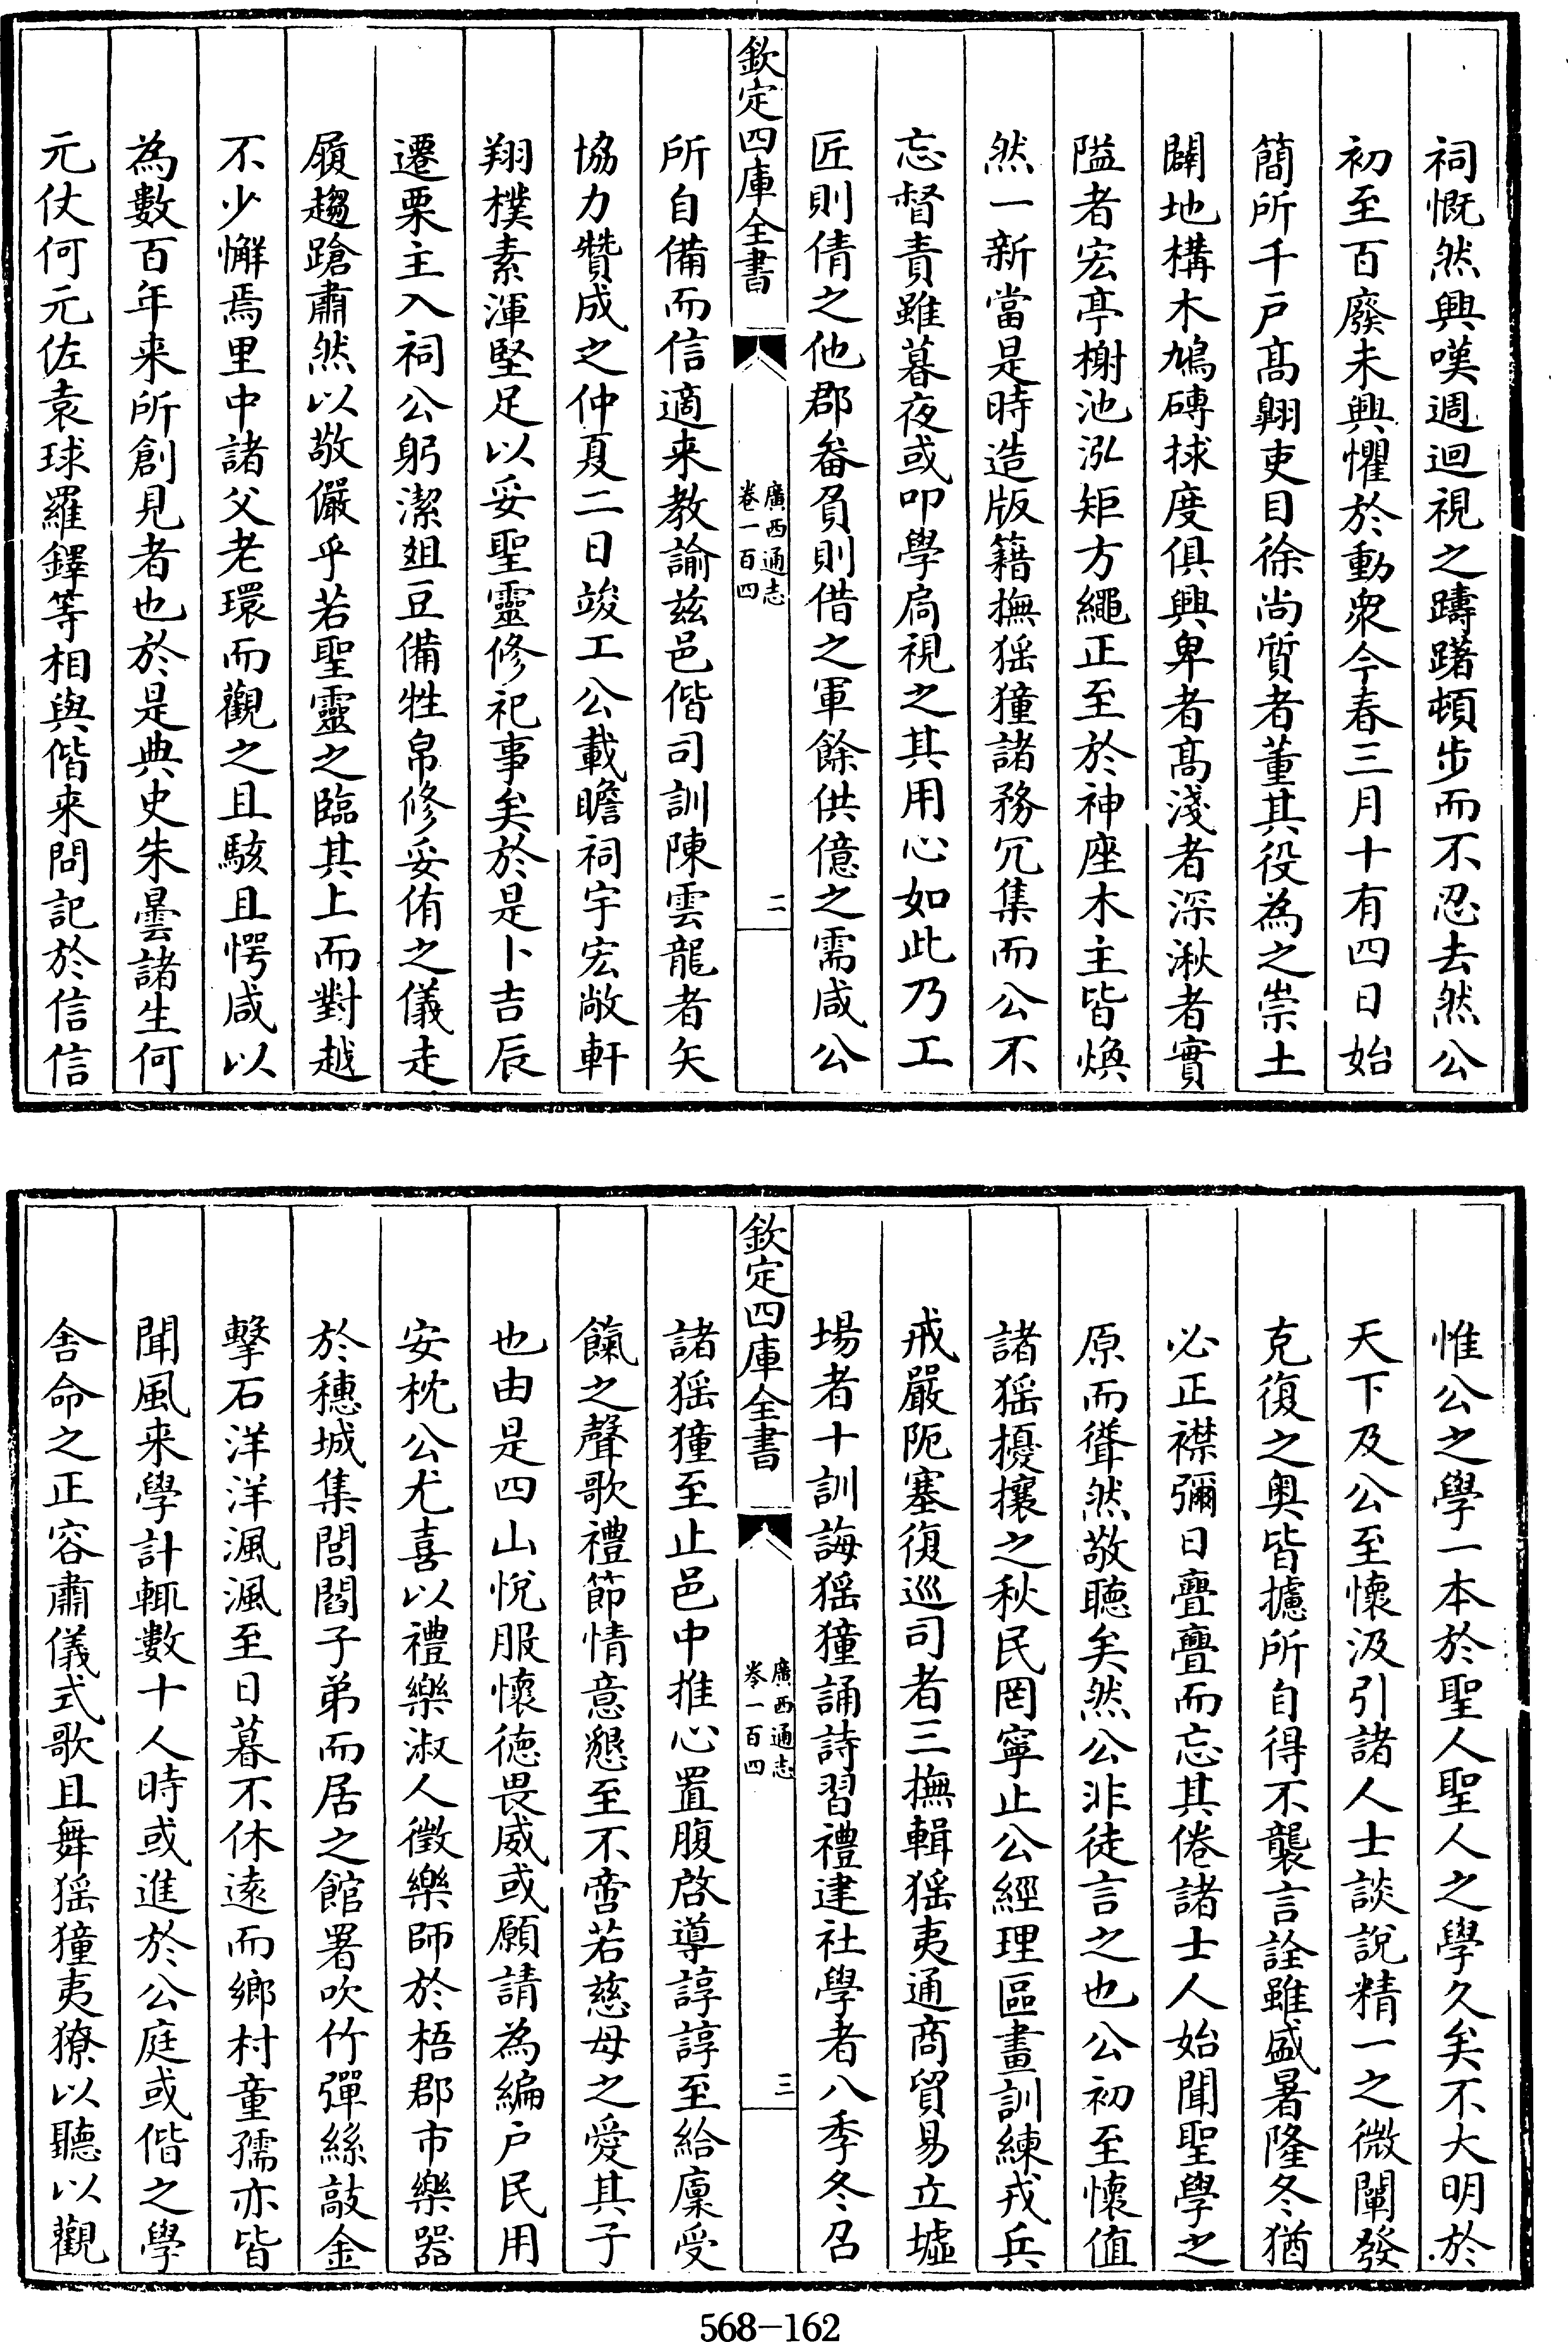 祠慨然興嘆週迴視之躊躇頓步而不忍去然公
初至百廢未興懼於動衆今春三月十有四日始
簡所千戸髙翺吏目徐尚質者董其役為之崇土
闢地構木鳩磚捄度俱興卑者髙淺者深湫者實
隘者宏亭榭池泓矩方繩正至於神座木主皆煥
然一新當是時造版籍撫猺獞諸務冗集而公不
忘督責雖暮夜或叩學扃視之其用心如此乃工
匠則倩之他郡畚臿則借之軍餘供億之需咸公
欽定四庫全書
廣西通志
卷一百四
二
所自備而信適来教諭兹邑偕司訓陳雲龍者矢
協力贊成之仲夏二日竣工公載瞻祠宇宏敞軒
翔樸素渾堅足以妥聖靈修祀事矣於是卜吉辰
遷栗主入祠公躬潔俎豆備牲帛修妥侑之儀走
履趨蹌肅然以敬儼乎若聖靈之臨其上而對越
不少懈焉里中諸父老環而觀之且駭且愕咸以
為數百年来所創見者也於是典史朱曇諸生何
元仗何元佐袁球羅鐸等相與偕来問記於信信
惟公之學一本於聖人聖人之學久矣不大明於
天下及公至懷汲引諸人士談說精一之微闡發
克復之奥皆攄所自得不襲言詮雖盛暑隆冬猶
必正襟彌日亹亹而忘其倦諸士人始聞聖學之
原而聳然敬聽矣然公非徒言之也公初至懷值
諸猺擾攘之秋民罔寧止公經理區畫訓練戎兵
戒嚴阨塞復巡司者三撫輯猺夷通商貿易立墟
場者十訓誨猺獞誦詩習禮建社學者八季冬召
欽定四庫全書
廣西通志
卷一百四
三
諸猺獞至止邑中推心置腹啓導諄諄至給廩受
餼之聲歌禮節情意懇至不啻若慈母之愛其子
也由是四山悅服懷徳畏威或願請為編户民用
安枕公尤喜以禮樂淑人徵樂師於梧郡市樂器
於穗城集閭閻子弟而居之館署吹竹彈絲敲金
擊石洋洋渢渢至日暮不休逺而鄉村童孺亦皆
聞風来學計輒數十人時或進於公庭或偕之學
舎命之正容肅儀式歌且舞猺獞夷獠以聽以觀
568-162